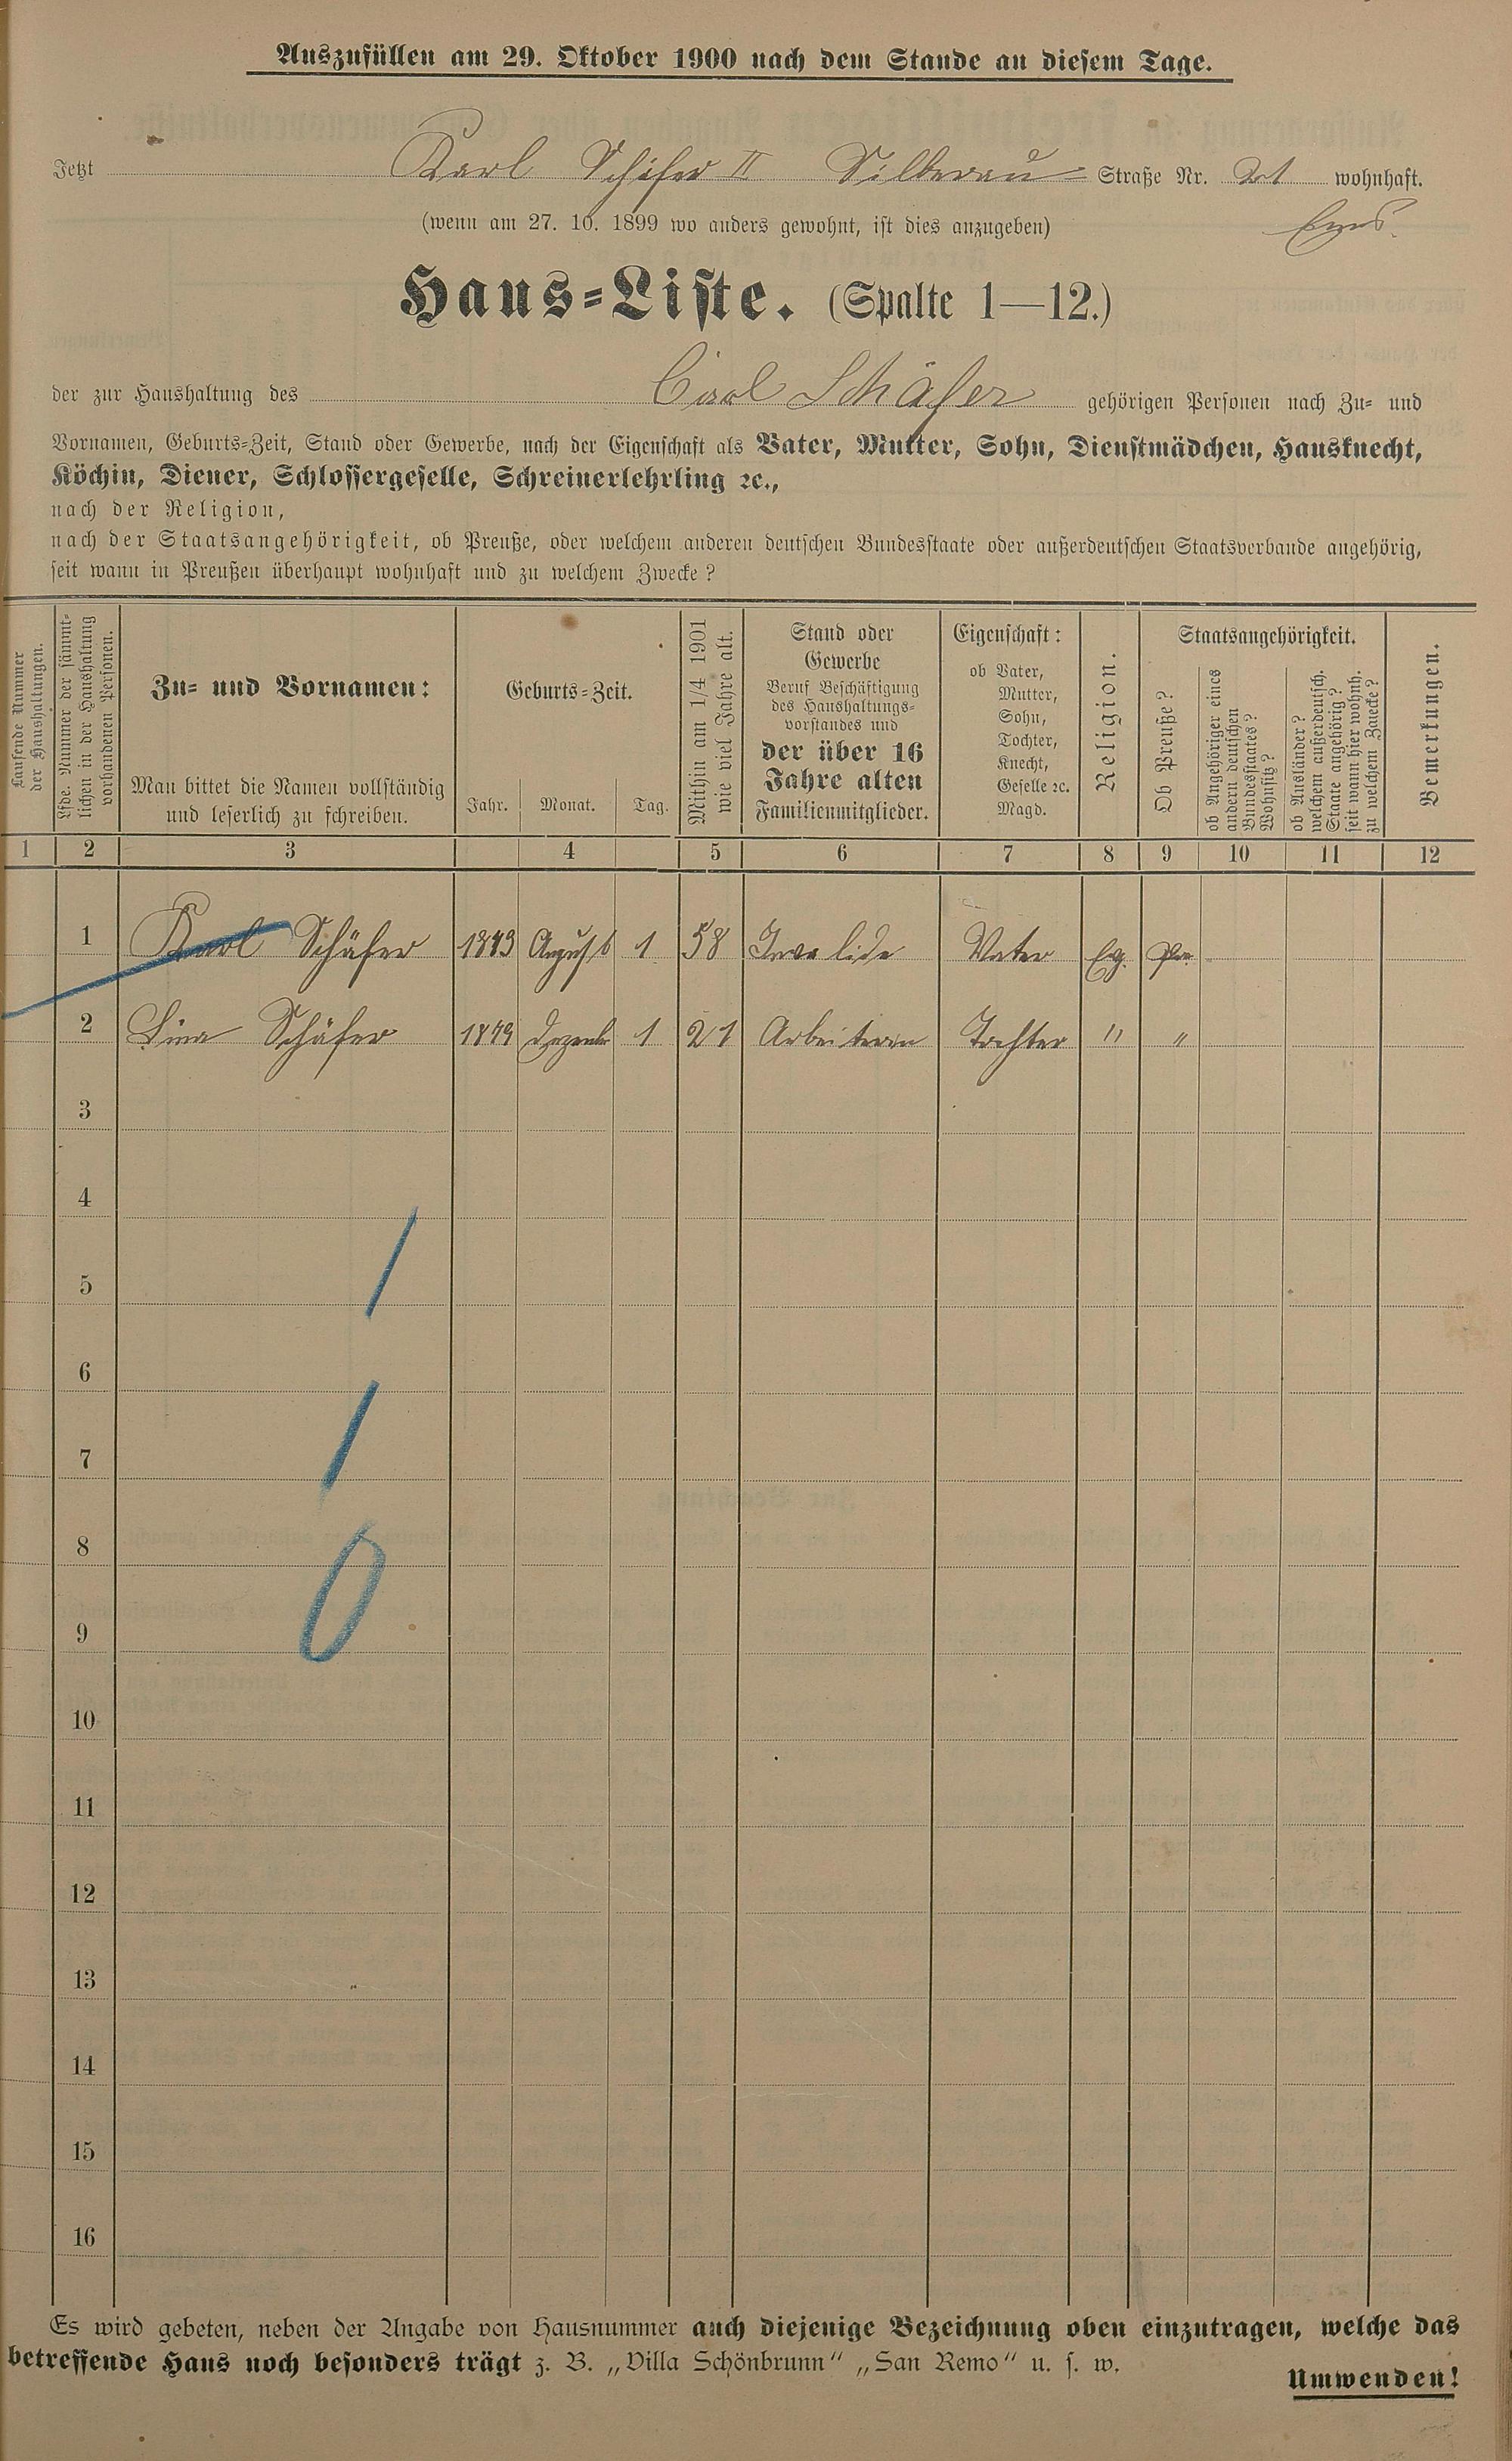 Auszufüllen am 29. Oktober 1900 nach dem Stande an diesem Tage.
Jetzt Karl Schäfer II Silberau Straße Nr. wohnhaft.
(wenn am 27. 10. 1899 wo anders gewohnt, ist dies anzugeben) Ems.
Haus-Liste. (Spalte 1—12.)
der zur Haushaltung des Carl Schäfer gehörigen Personen nach Zu- und
Vornamen, Geburts-Zeit, Stand oder Gewerbe, nach der Eigenschaft als Vater, Mutter, Sohn, Dienstmädchen, Hausknecht,
Köchin, Diener, Schlossergeselle, Schreinerlehrling ꝛc.,
nach der Religion,
nach der Staatsangehörigkeit, ob Preuße, oder welchem anderen deutschen Bundesstaate oder außerdeutschen Staatsverbande angehörig,
seit wann in Preußen überhaupt wohnhaft und zu welchem Zwecke?
Laufende Nummer
der Haushaltungen.
Lfde. Nummer der sämmt-
lichen in der Haushaltung
vorhandenen Personen.
Zu- und Vornamen:
Man bittet die Namen vollständig
und leserlich zu schreiben.
Geburts-Zeit.
Jahr. Monat. Tag.
Mithin am 1/4 1901
wie viel Jahre alt.
Stand oder
Gewerbe
Beruf Beschäftigung
des Haushaltungs-
vorstandes und
der über 16
Jahre alten
Familienmitglieder.
Eigenschaft:
ob Vater,
Mutter,
Sohn,
Tochter,
Knecht,
Geselle ꝛc.
Magd.
Religion.
Staatsangehörigkeit.
Ob Preuße?
ob Angehöriger eines
andern deutschen
Bundesstaates?
Wohnsitz?
ob Ausländer?
welchem außerdeutsch.
Staate angehörig?
seit wann hier wohnh.
zu welchem Zwecke?
Bemerkungen.
1 2 3 4 5 6 7 8 9 10 11 12
1 Karl Schäfer 1843 August 1 58 Invalide Vater Eg. Pr.
2 Lina Schäfer 1879 Dezemb 1 21 Arbeiterin Tochter " "
3
4
5
6
7
8
9
10
11
12
13
14
15
16
Es wird gebeten, neben der Angabe von Hausnummer auch diejenige Bezeichnung oben einzutragen, welche das
betreffende Haus noch besonders trägt z. B. „Villa Schönbrunn" „San Remo" u. s. w.
Umwenden!